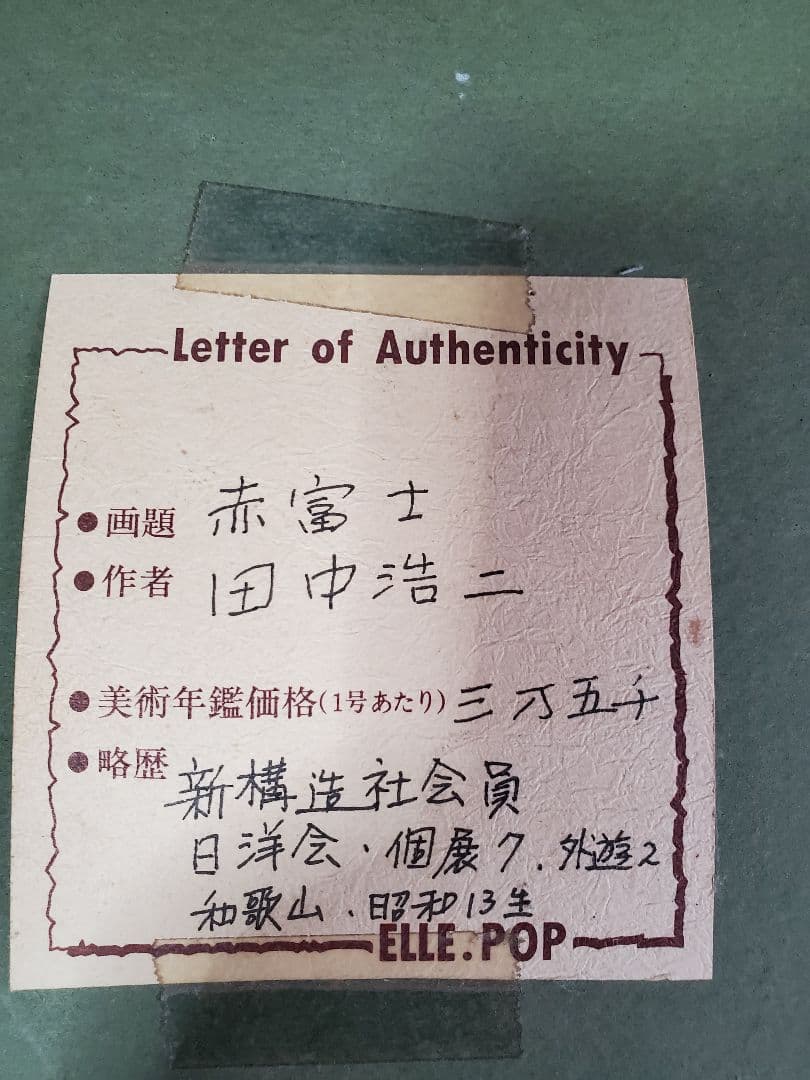 Letter of Authenticity
●画題 赤富士
●作者 田中浩二
●美術年鑑価格(1号あたり) 三万五千
●略歴 新構造社会員
日洋会・個展7.外遊2
和歌山・昭和13生
ELLE.POP